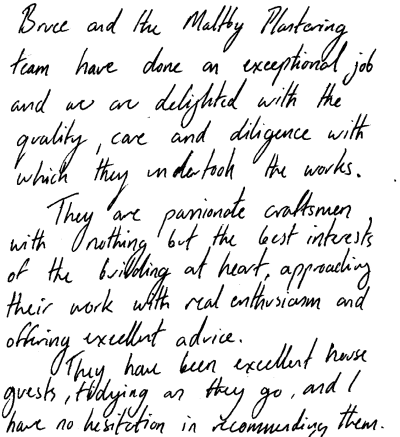 Bruce and the Maltby Plastering
team have done an exceptional job
and we are delighted with the
quality, care and diligence with
which they undertook the works.
They are passionate craftsmen,
with nothing but the best interests
of the building at heart, approaching
their work with real enthusiasm and
offering excellent advice.
They have been excellent house
guests, tidying as they go, and I
have no hesitation in recommending them.